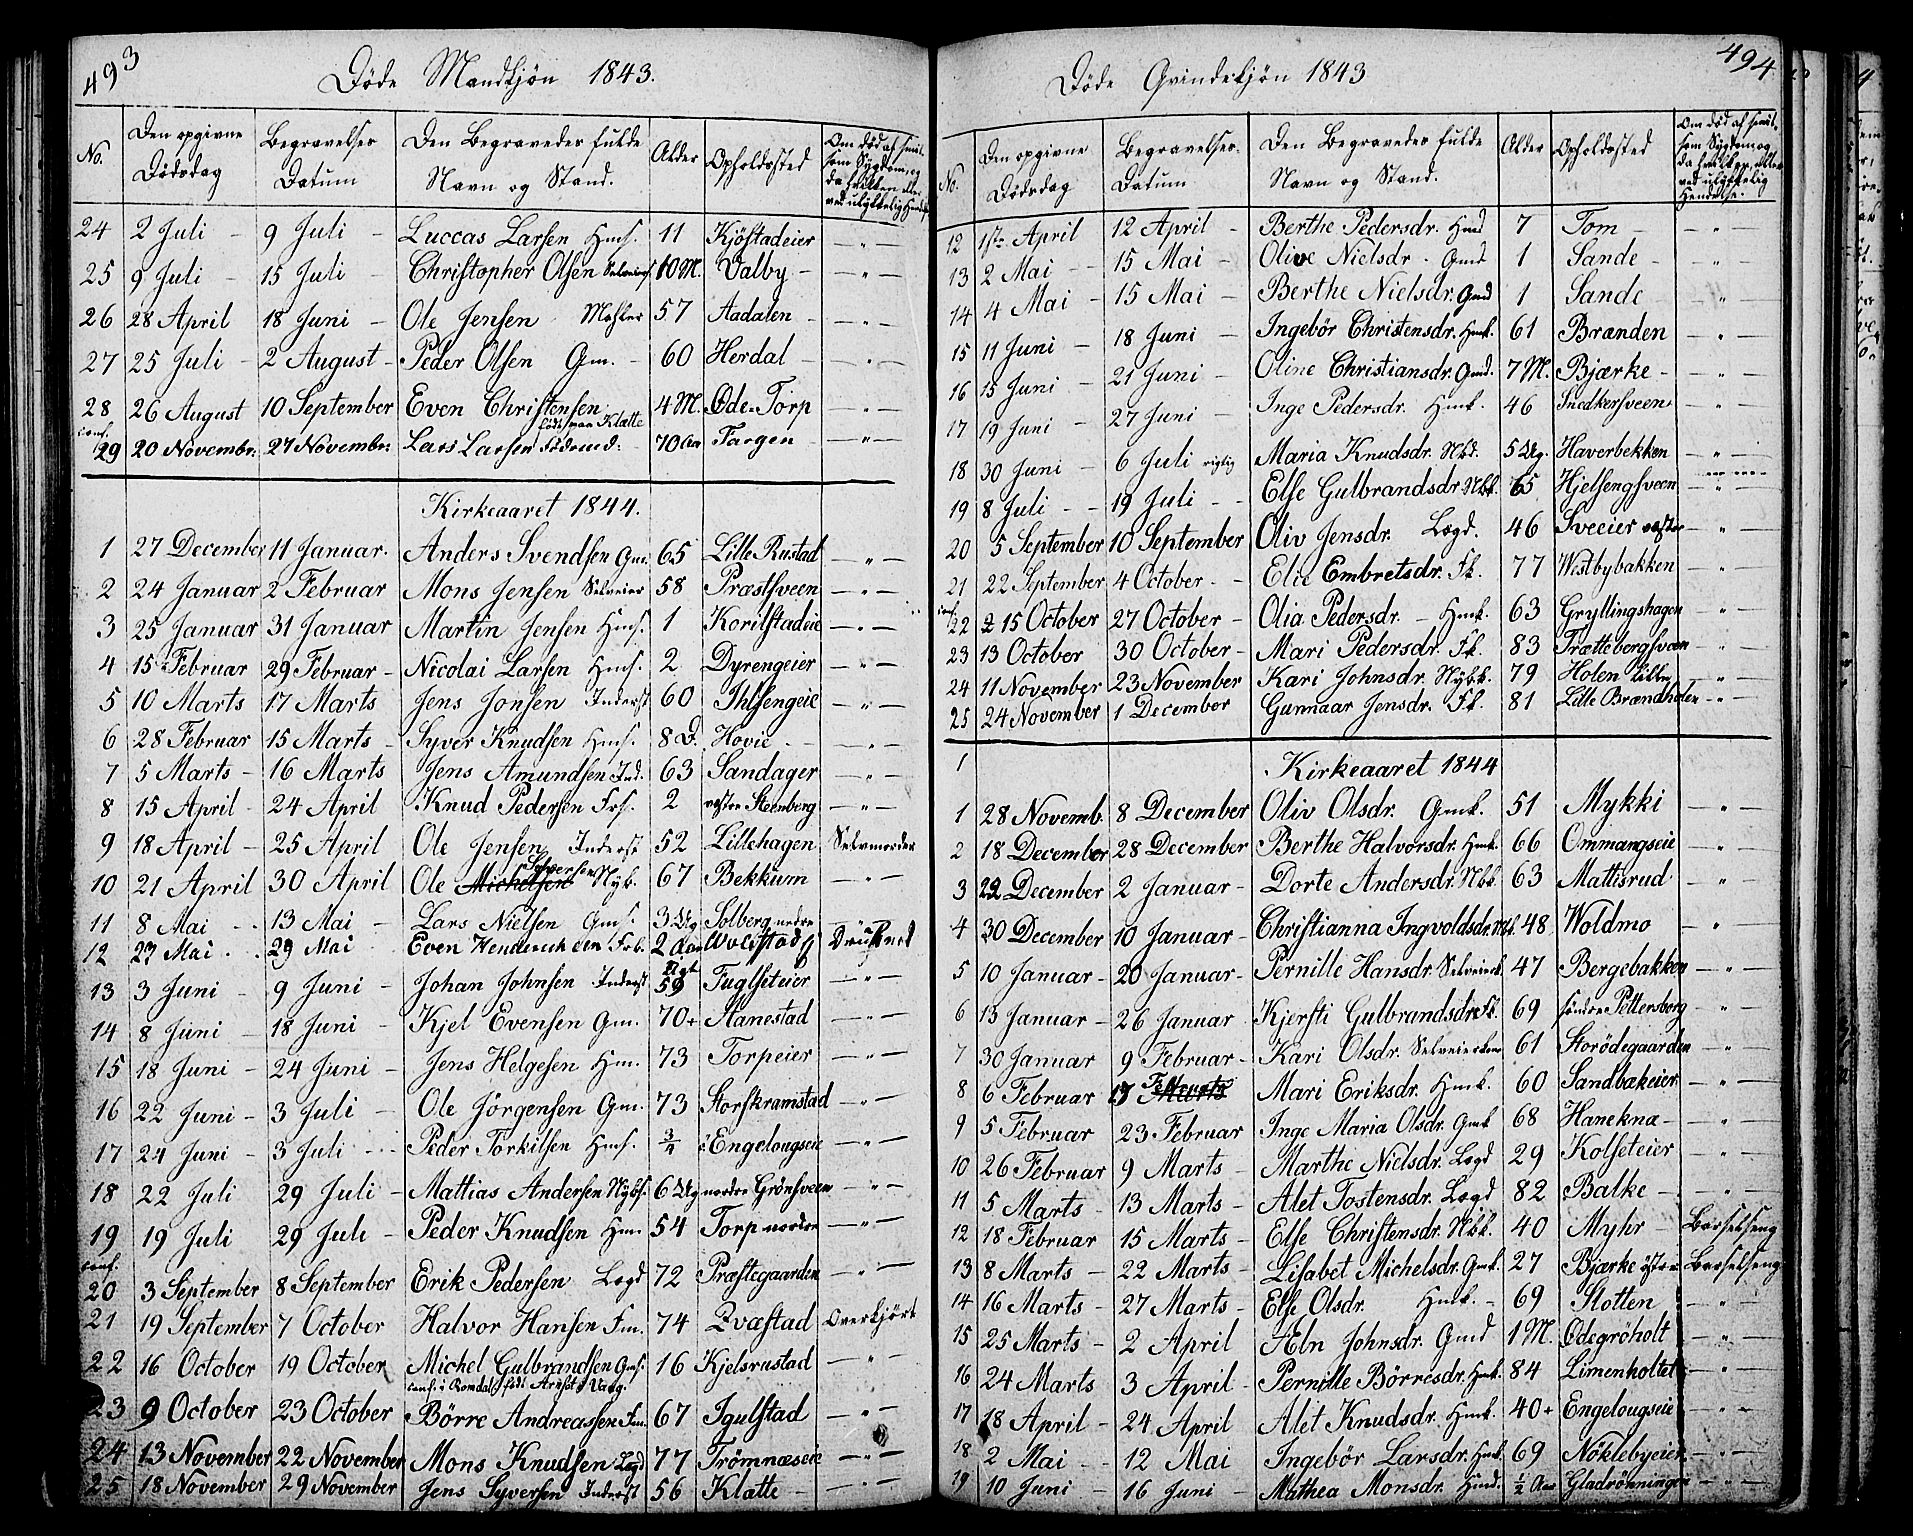 493
Döde Mandkjön 1843.
No. Den opgivne Dödsdag Begravelses Datum Den Begravedes fulde Navn og Stand. Alder Opholdssted Om död af smitsom Sygdom og da hvilken eller ved ulykkelig Hendelse
24 2 Juli - 9 Juli - Luccas Larsen Hms. 11 Kjöstadeier - " -
25 9 Juli - 15 Juli - Christopher Olsen Selveiers 10 M. Valby - - " -
26 28 April 18 Juni - Ole Jensen Mahler 57 Aadalen - - " -
27 25 Juli - 2 August - Peder Olsen Gm. - 60 Herdal - - " -
28 26 August 10 September Even Christensen 4 M. Öde-Torp - " -
conf. födt paa Klætte
29 20 Novembr: 27 Novembr: Lars Larsen Föderaad: 70 Aar Fargen - " -
Kirkeaaret 1844.
1 27 December 11 Januar. Anders Svendsen Gm. 65 Lille Rustad - " -
2 24 Januar 2 Februar Mons Jensen Selveier 58 Præstsveen - " -
3 25 Januar 31 Januar Martin Jensen Hms. 1 Korilstadeie - " -
4 15 Februar 29 Februar - Nicolai Larsen Hms. 2 Dyrengeier - " -
5 10 Marts 17 Marts Jens Jonsen Inderst 60 Ihlsengeie - " -
6 28 Februar 15 Marts - Syver Knudsen Hms. 8 D. Hovie - - " -
7 5 Marts - 16 Marts Jens Amundsen Ind. 63 Sandager - " -
8 15 April - 24 April Knud Pedersen Frs. 2 vestre Steenberg - " -
9 18 April - 25 April Ole Jensen Inderst 52 Lillehagen Selvmorder
Syversen
10 21 April 30 April Ole Michelsen Nyb. 67 Bekkum - " -
11 8 Mai - 13 Mai - Lars Nielsen Gms. 3 Ug Solberg nedre
12 27 Mai - 29 Mai Even Hendericksen Frb. 2 Aar Wolfstad Drucknet
13 3 Juni - 9 Juni - Johan Johnsen Inderst 59 Fuglseteier - " -
14 8 Juni - 18 Juni - Kjel Evensen Gm. 70+ Stanestad - " -
15 18 Juni - 24 Juni - Jens Helgesen Hm. 73 Torpeier - " -
16 22 Juni - 3 Juli - Ole Jörgensen Gm. 73 Storskramstad - " -
17 24 Juni - 3 Juli - Peder Torkilsen Hms. 3/4 Engelougseie - " -
18 22 Juli 29 Juli - Mattias Andersen Nybs. 6 Ug nordre Grönsveen - " -
19 19 Juli 29 Juli - Peder Knudsen Hm. 54 Torp nordre - " -
conf.
20 3 September 8 September Erik Pedersen Lægd 72 Præstegaarden - " -
21 19 September 7 October Halvor Hansen Fm. 74 Qvæstad Overkjört
22 16 October 19 October Michel Gulbrandsen Gms. 16 Kjelsrustad - " -
conf. i Romdals
23 9 October 23 October Börre Andreassen Fm. 67 Igulstad - " -
24 13 November 22 November Mons Knudsen Lægd 77 Trömnæseie - " -
25 18 November 29 November Jens Syversen Inderst 56 Klætte - - " -
494
Döde Qvindekjön 1843
No. Den opgivne Dödsdag Begravelses- Datum Den Begravedes fulde Navn og Stand. Alder Opholdssted Om död af smitsom Sygdom og da hvilken, eller ved ulykkelig Hendelse.
12 1ste April 12 April - Berthe Pedersdr. Hmd 7 Tom - - " -
13 2 Mai - 15 Mai - Olive Nielsdr - Gmd 1 Sande - - " -
14 4 Mai - 15 Mai - Berthe Nielsdr. Gmd 1 Sande "
15 11 Juni - 18 Juni - Ingebör Christensdr. Hmk. 61 Brænden - " -
16 15 Juni - 21 Juni - Oline Christiansdr. Gmd. 7 M. Bjærke - - " -
17 19 Juni - 27 Juni - Inge Pedersdr. Hmk. 46 Snedkersveen - " -
18 30 Juni - 6 Juli rigtig Maria Knudsdr. Nbd. 5 Ug. Haverbekken - " -
19 8 Juli - - 19 Juli - Else Gulbrandsdr. Nbk. 65 Hjelsengsveen - " -
20 5 September 10 September Oliv Jensdr. Lægd. 46 Sveeier vestre - " -
21 22 September 4 October - - Elie Embretsdr. Fk. 77 Westbybakken - " -
conf.
22 15 October 27 October - Olia Pedersdr. - Hmk. 63 Gryllingshagen - " -
23 13 October 30 October - Mari Pedersdr. Fk. 83 Frættebergsveen - " -
24 11 November 23 November Kari Johnsdr. Nybk. 79 Holen lille - " -
25 24 November 1 December Gunnaar Jensdr. Fk. 81 Lille Brændholen - " -
Kirkeaaret 1844
1 28 Novemb. 8 December Oliv Olsdr. Gmk. 51 Mykki - " -
2 18 December 28 December Berthe Halvorsdr. Hmk. 66 Ommangseie - " -
3 22 December 2 Januar - Dorte Andersdr. Nbk. 63 Mattisrud - " -
4 30 December 10 Januar - Christianna Ingvoldsdr. Nbk. 48 Woldmo - " -
5 10 Januar - 20 Januar - Pernille Hansdr. Selveierk. 47 Bergebakken - " -
6 13 Januar - 26 Januar Kjersti Gulbrandsdr. Fk. 69 söndre Pettersberg - " -
7 30 Januar 9 Februar - Kari Olsdr. Selveierkone 61 Storödegaarden - " -
8 6 Februar 17 Marts Mari Eriksdr. Hmk. 60 Sandbækeier - " -
9 5 Februar 23 Februar Inge Maria Olsdr. Gmk 68 Haneknæ - - " -
10 26 Februar 9 Marts - Marthe Nielsdr. Lægd 29 Kolseteier - " -
11 5 Marts - 13 Marts - Alet Tostensdr. Lægd 82 Balke - - " -
12 18 Februar 15 Marts - Else Christensdr. Nbk. 40 Myhr - Barselseng
13 8 Marts - 22 Marts - Lisabet Michelsdr. Gmk. 27 Bjærke östre Barselseng
14 16 Marts - 27 Marts - Else Olsdr. Hmk. - 69 Slotten - " -
15 25 Marts - 2 April Aln Johnsdr. Gmd 1 M. Ödegröholt - " -
16 24 Marts 3 April - Pernille Börresdr. Hmk. 84 Limenholtet - " -
17 18 April - 24 April Alet Knudsdr. Hmk. 40+ Engelougseie - " -
18 2 Mai - 12 Mai Ingebör Larsdr. Hmk. 69 Nöklebyeier - " -
19 10 Juni - 16 Juni - Mathea Monsdr. Hmd. 1/2 Aar Gladrönningen - " -